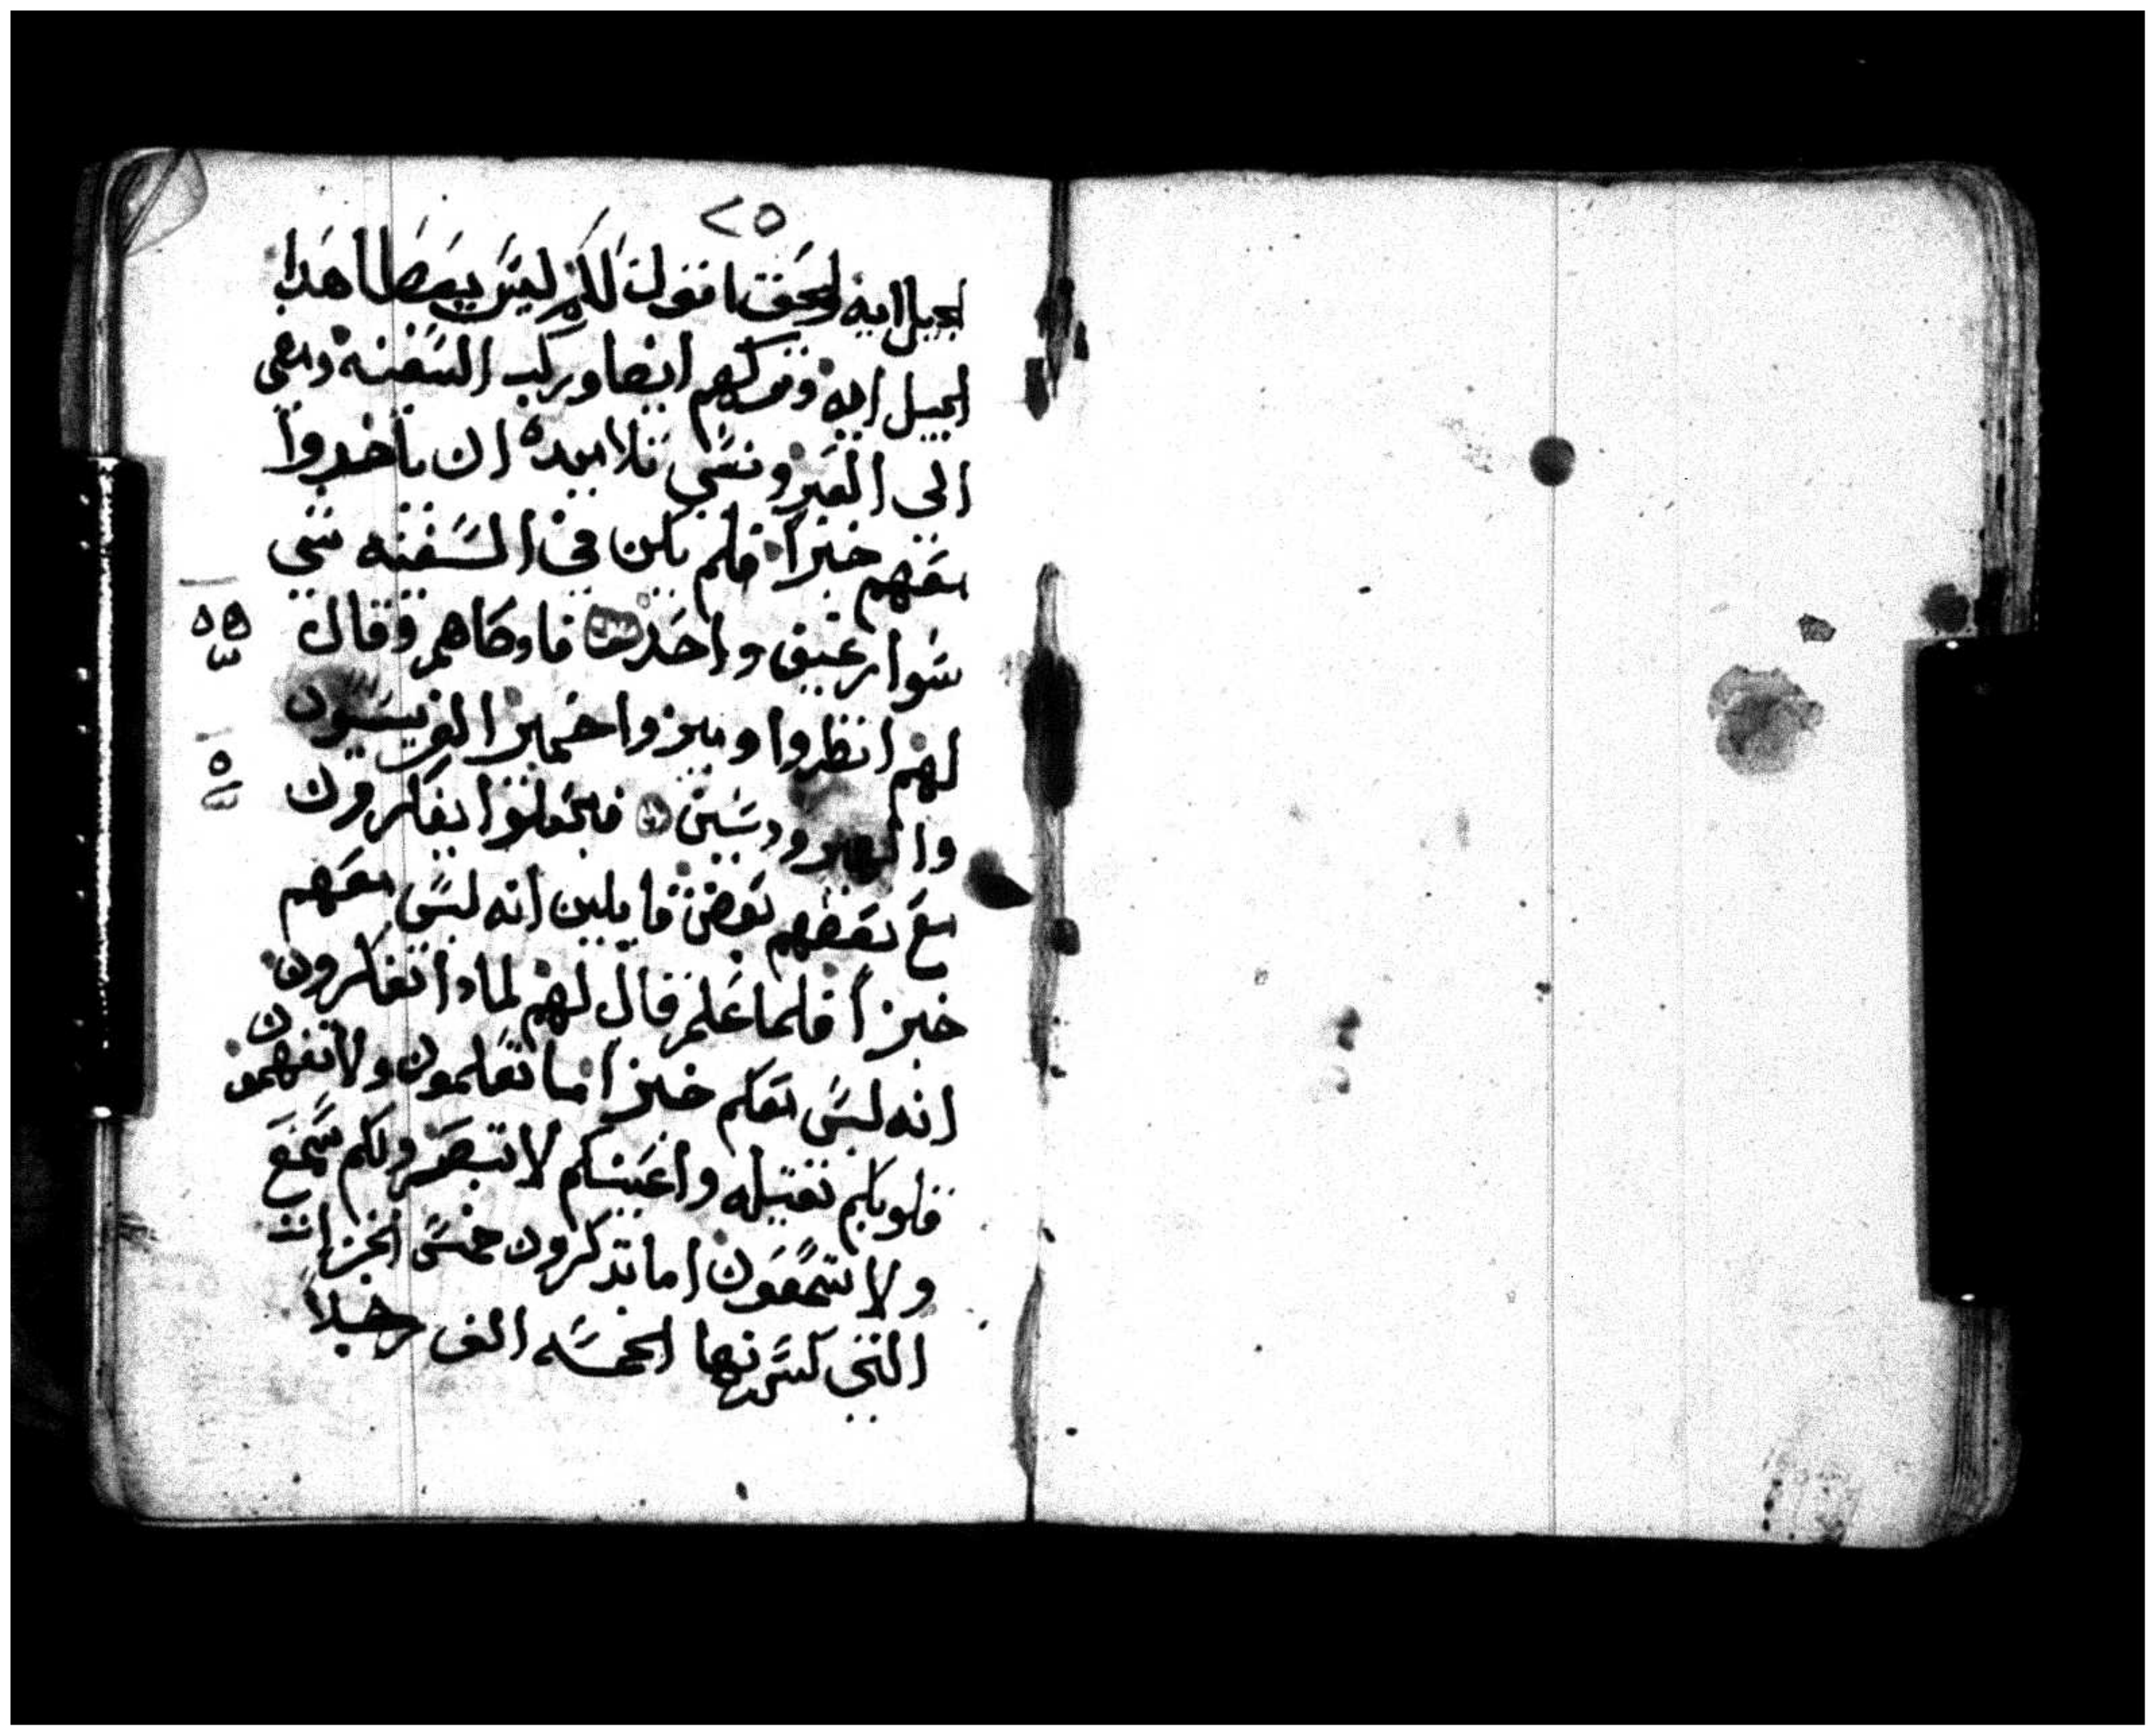 ٢٥
الجيل اية الحق اقول لكم ليس يعطا هدا
الجيل اية وتركهم ايضا وركب السفينة ومضي
الي العبر ونسي تلاميده ان ياخدوا
معهم خبزا فلم يكن في السفينه شي
سوا رغيف واحد فاوصاهم وقال
لهم انظروا وميزوا خمير الفريسيون
والهيرودسيين فجعلوا يفكرون
مع بعضهم بعض قايلين انه ليس معهم
خبزا فلما علم قال لهم لمادا تفكرون
انه ليس معكم خبزا اما تعلمون ولا تفهمون
قلوبكم تقيله واعينكم لا تبصر ولكم سمع
ولا تسمعون اما تدكرون خمس الخبزات
التي كسرتها الخمسه الف رجلا